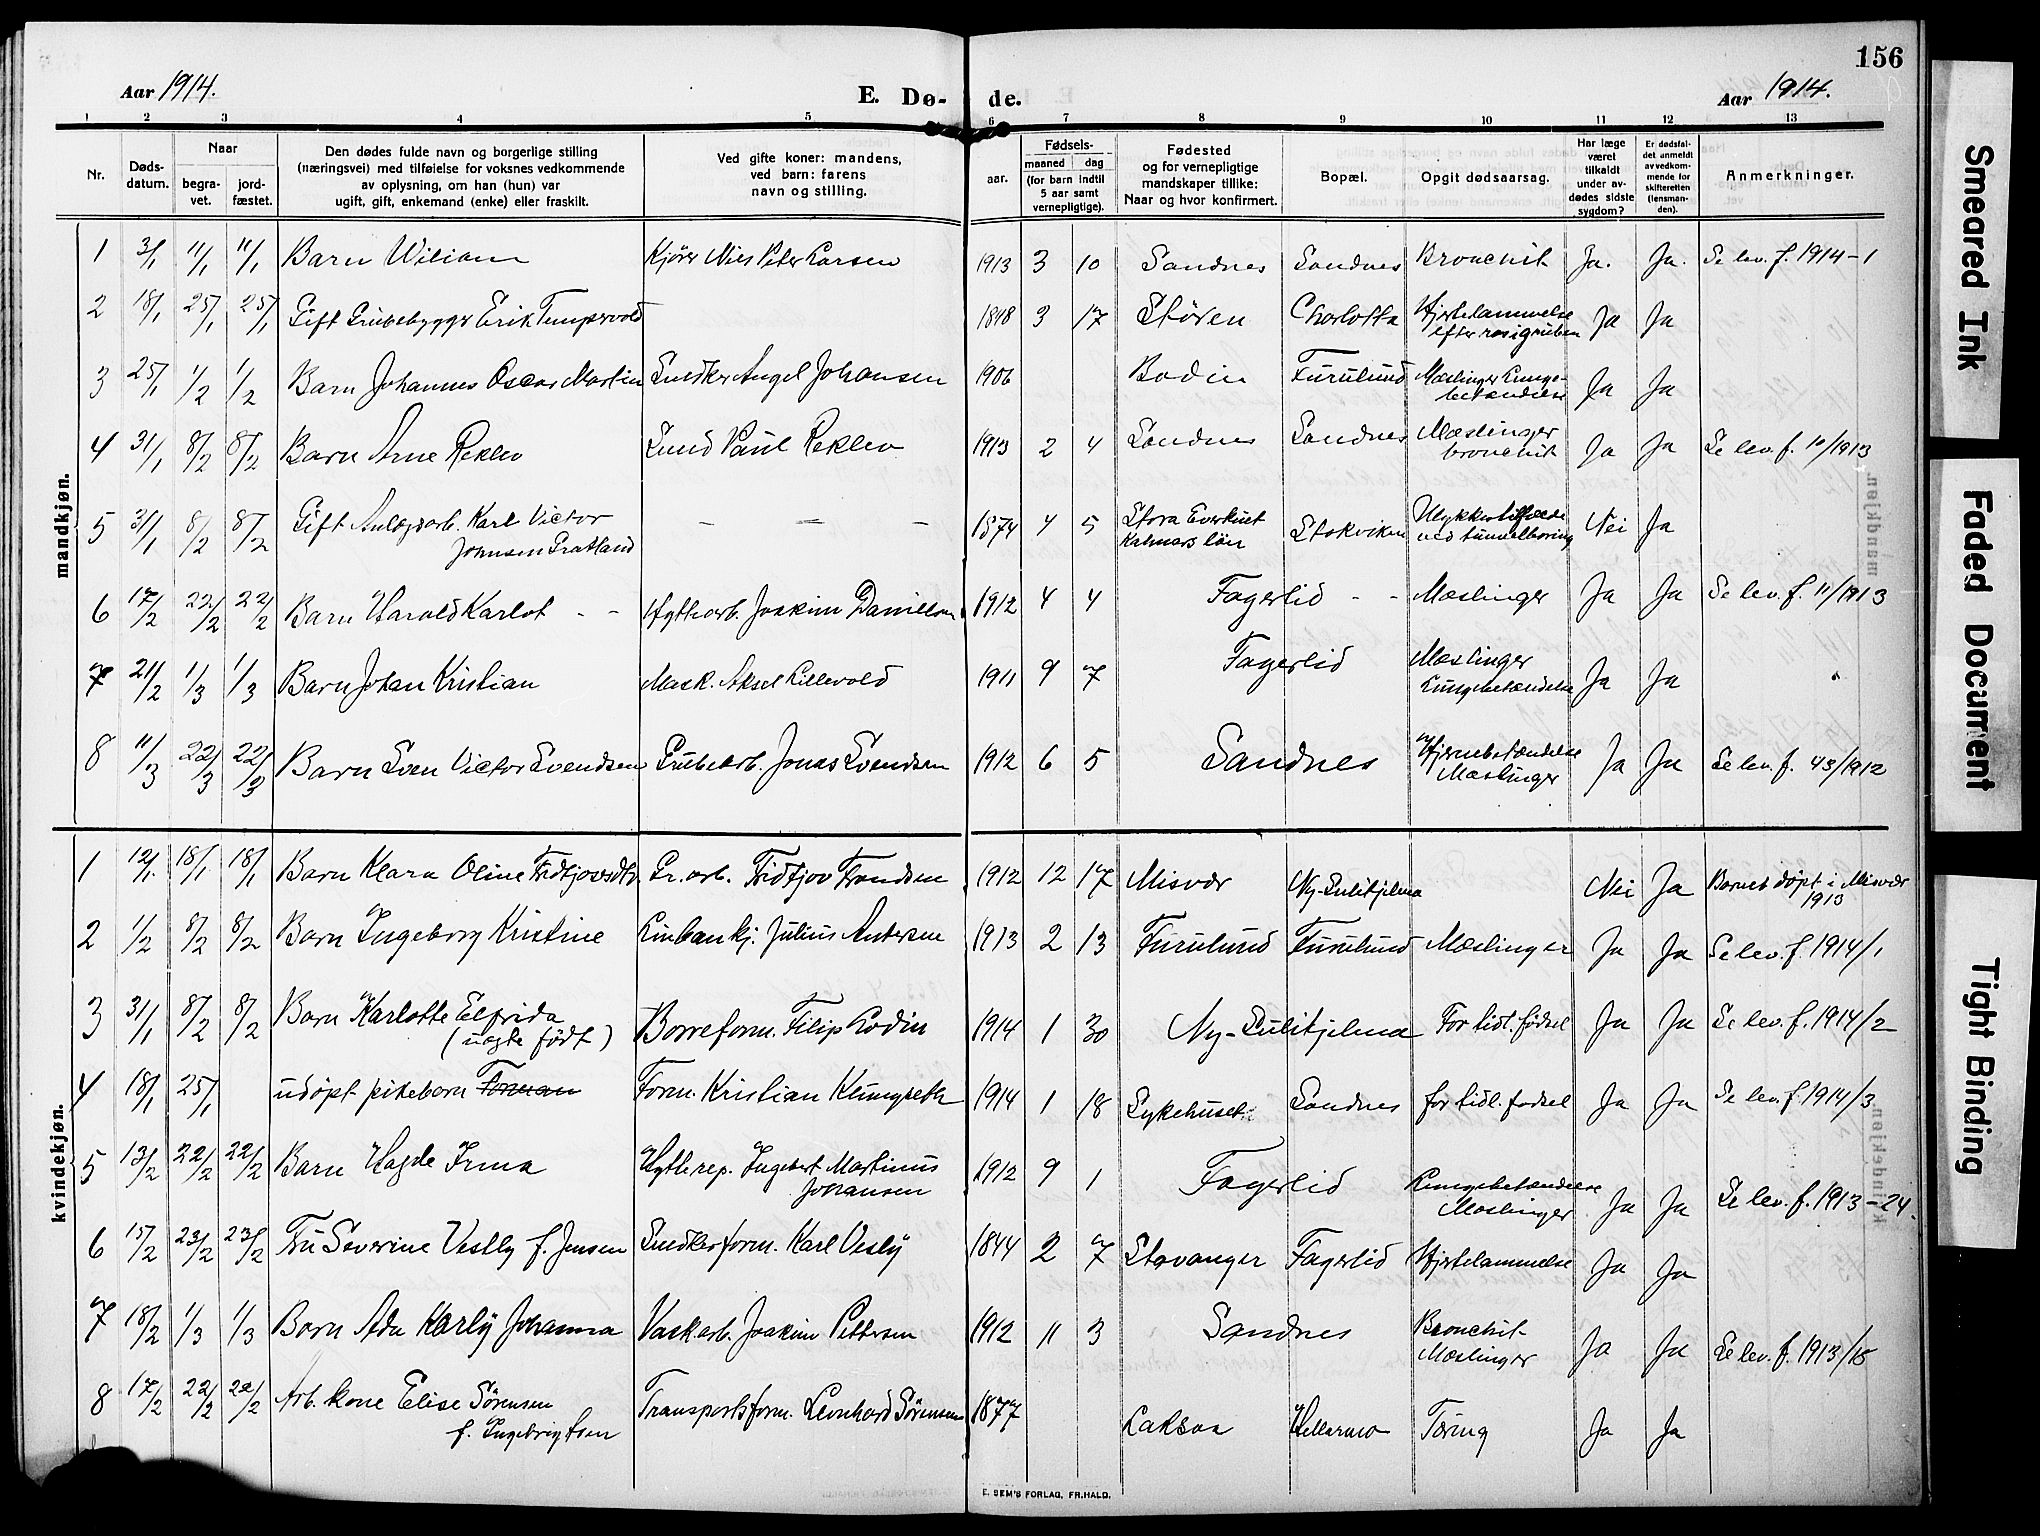 156
Aar 1914.
E. Dø-
de.
Aar 1914.
1 2 3 4 5 6 7 8 9 10 11 12 13
Nr.
Døds-
datum.
Naar
begra-
vet.
jord-
fæstet.
Den dødes fulde navn og borgerlige stilling
(næringsvei) med tilføielse for voksnes vedkommende
av oplysning, om han (hun) var
ugift, gift, enkemand (enke) eller fraskilt.
Ved gifte koner: mandens,
ved barn: farens
navn og stilling.
aar.
Fødsels-
maaned dag
(for barn indtil
5 aar samt
vernepligtige).
Fødested
og for vernepligtige
mandskaper tillike:
Naar og hvor konfirmert.
Bopæl.
Opgit dødsaarsag.
Har læge
været
tilkaldt
under av-
dødes sidste
sygdom?
Er dødsfal-
det anmeldt
av vedkom-
mende for
skifteretten
(lensman-
den).
Anmerkninger.
mandkjøn.
1 3/1 11/1 11/1 Barn Wiliam Kjører Nies Peter Larsen 1913 3 10 Sandnes Sandnes Bronchit Ja. Ja. Se lev. f. 1914-1
2 18/1 25/1 25/1 Gift Grubebygger Erik Tempervold 1848 3 17 Støren Charlotta Hjertelammelse
efter ras i gruben Ja Ja
3 25/1 1/2 1/2 Barn Johannes Oscar Martin Snedker Angel Johansen 1906 Bodin Furulund Mæslinger Lunge-
betændelse Ja Ja
4 31/1 8/2 8/2 Barn Arne Reklev Smed Paul Reklev 1913 2 4 Sandnes Sandnes Mæslinger
bronchit Ja Ja Se lev. f. 10/1913
5 31/1 8/2 8/2 Gift Anlægsarb. Karl Victor
Johnsen Gratland - - - 1874 4 5 Stora
Kalmars län Stokviken Ulykkestilfælde
ved tunnelboring Nei Ja
6 17/2 22/2 22/2 Barn Harald Karlot - - Hyttearb. Joakim Danielsen 1912 4 4 Fagerlid - - Mæslinger Ja Ja Se lev. f. 11/1913
7 21/2 1/3 1/3 Barn Johan Kristian Mask. Aksel Lillevold 1911 9 7 Fagerlid Mæslinger
Lungebetændelse Ja Ja "
8 11/3 22/3 22/3 Barn Sven Victor Svendsen Grubearb. Jonas Svendsen 1912 6 5 Sandnes Hjernebetændelse
Mæslinger Ja Ja Se lev. f. 43/1912
kvindekjøn.
1 12/1 18/1 18/1 Barn Klara Oline Fridtjovsdtr. Gr. arb. Fridtjov Frandsen 1912 12 17 Misvær Ny-Sulitjelma Nei Ja Barnet døpt i Misvær
1913
2 1/2 8/2 8/2 Barn Ingeborg Kristine Linbankj. Julius Antersen 1913 2 13 Furulund Furulund Mæslinger Ja Ja Se lev. f. 1914/1
3 31/1 8/2 8/2 Barn Karlotte Elfrida
(uægte født) Boreform. Filip Lodin 1914 1 30 Ny-Sulitjelma For tidl. fødsel Ja Ja Se lev. f. 1914/2
4 18/1 25/1 udøpt pikebarn Forman Form. Kristian Klungseth 1914 1 18 Sykehuset Sandnes for tidl. fødsel Ja Ja Se lev. f. 1914/3
5 13/2 22/2 22/2 Barn Hagde Irma Hytterep. Ingebert Martinus
Johansen 1912 9 1 Fagerlid Lungebetændelse
Mæslinger Ja Ja Se lev. f. 1913-24.
6 15/2 23/2 23/2 Fru Severine Vestly f. Jensen Snedkerform. Karl Vesly 1844 2 7 Stavanger Fagerlid Hjertelammelse Ja Ja
7 18/2 1/3 1/3 Barn Ada Karly Johanna Vaskarb. Joakim Pettersen 1912 11 3 Sandnes Bronchit
Mæslinger Ja Ja Se lev. f. 1913/15
8 17/2 22/2 22/2 Arb. kone Elise Sørensen
f. Ingebrigtsen Transportform. Leonhard Sørensen 1877 Laksaa Hellarmo Tæring Ja Ja
E. SEM'S FORLAG, FR.HALD.
Smeared Ink
Faded Document
Tight Binding